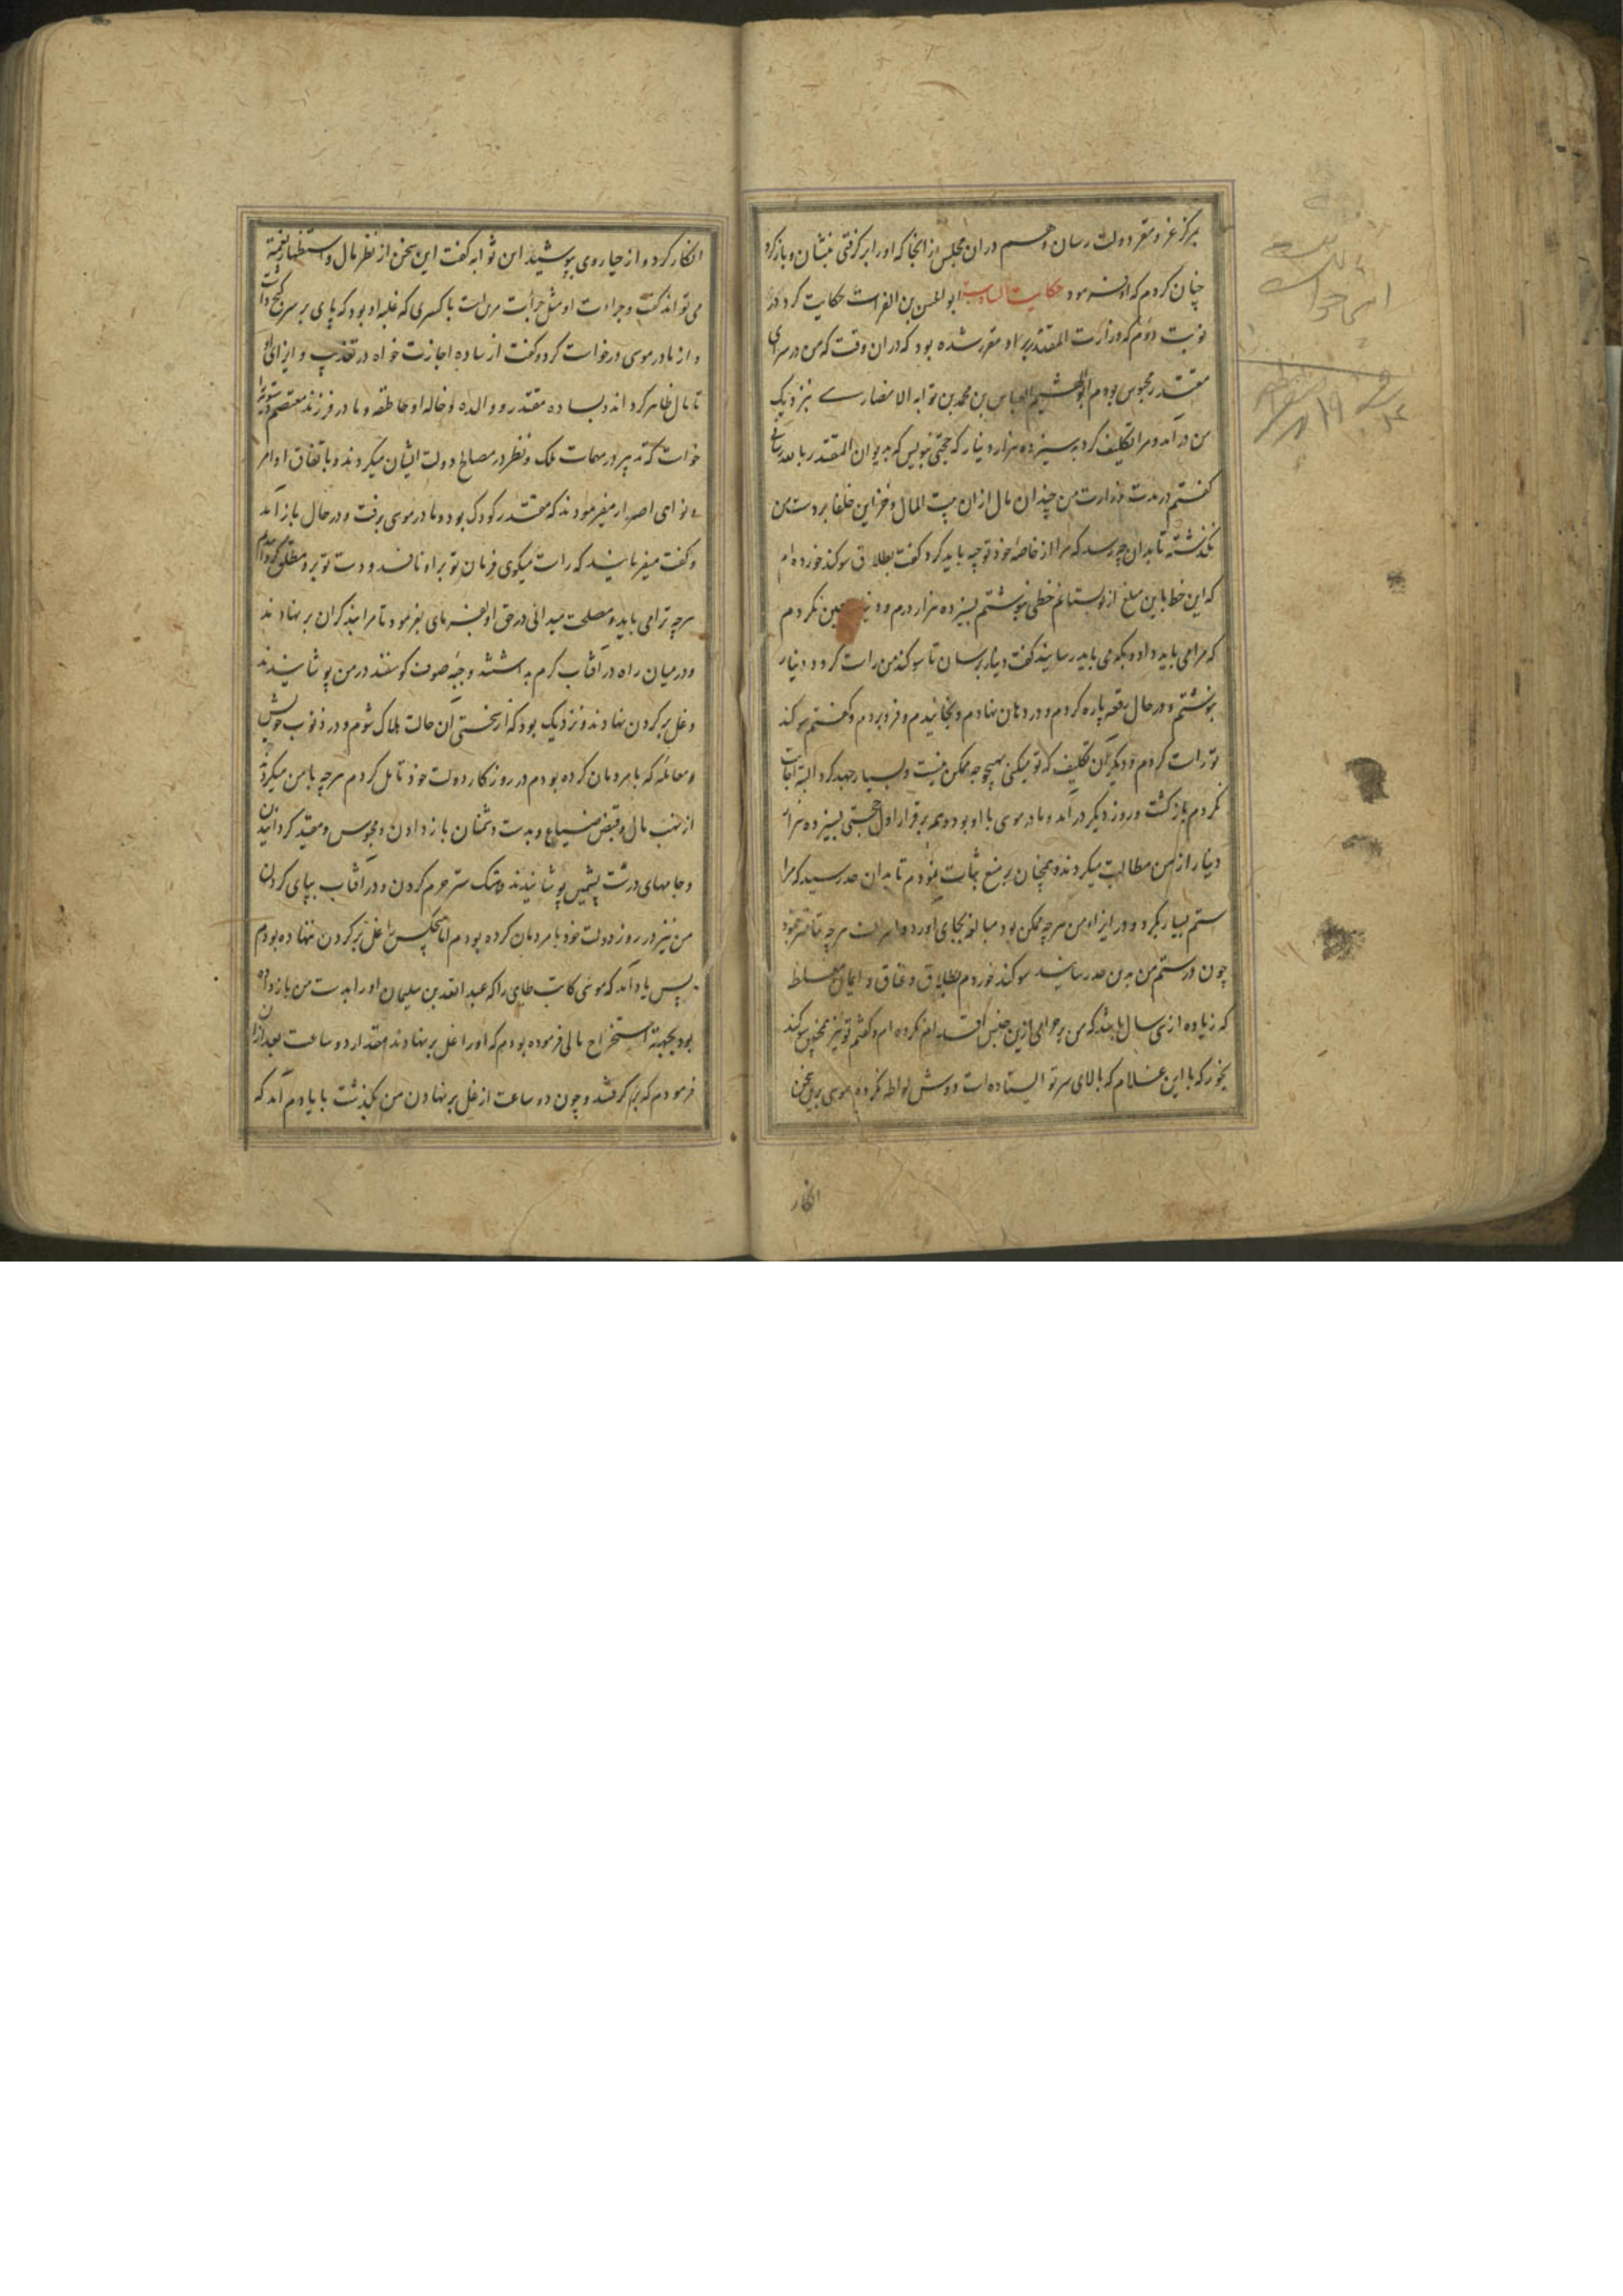 بمرکز عز و مقر دولت رسان و هم در ان مجلس از انجا که اورا برگرفتی بنشان و باز کرد
چنان کردم که او فرموده حکایت السادسه ابو الحسن بن الفرات حکایت کرد که
نوبت دوم که وزارت المقتدر بر او مقرر شده بود که در ان وقت که من در سرای
مقتدر محبوس بودم ابو الهیثم العباس بن محمد بن ثوابه الانصاری بنزدیک
من در آمد و مرا تکلیف کرد به سیزده هزار دینار که حجتی بنویس که بدیوان المقتدر بالله رسانی
گفتم در مدت وزارت من چندان مال از ان بیت المال و خزاین خلفا بر دست من
نگذشته تا بدان چه رسد که مرا از خاصهٔ خود توجیه باید کرد گفت بطلاق سوگند خورده ام
که این خط باین مبلغ از تو بستانم خطی بنوشتم بسیزده هزار درم و دینار معین نکردم
که مرا می باید داد و بکه می باید رسانید گفت دینار برسان تا سوگند من راست گردد دینار
بنوشتم و در حال رقعه پاره کردم و در دهان نهادم و بخائیدم و فرو بردم و گفتم سوگند
تو راست کردم و دیگر آن تکلیف که تو میکنی بهیچ وجه ممکن نیست و بسیار جهد کرد البته اجابت
نکردم بازگشت و روز دیگر در آمد و مادر موسی با او بود و هم بر قرار اول حجتی بسیزده هزار
دینار از من مطالبت میکردند و همچنان بر منع ثبات نمودم تا بدان حد رسید که مرا
ستم بسیار بکرد و در ایذاء من هرچه ممکن بود مبالغه بجای آورد و اهانت هرچه تمامتر نمود
چون در ستم من بدین حد رسانید سوگند خوردم بطلاق و عتاق و ایمان مغلظ
که زیاده از سی سال باشد که من بر حرامی ازین جنس اقدام نکرده ام و گفتم تو نیز همچنین سوگند
بخور که با این غلام که بالای سر تو ایستاده است دوش لواطه نکرده موسی برین سخن
انکار
انکار کرد و از حیا روی بپوشید ابن ثوابه گفت این سخن از نظر مال و استظهار بقیه
می تواند گفت و جراءت او مثل جراءت مردی است با کسری که غلبه او بود که پای بر سر گنج داشت
و از مادر موسی درخواست کرد و گفت از ساده اجازت خواه در تعذیب و ایذای او
تا مال ظاهر کرداند و بساده مقتدر و والده و خاله او خاطفه و مادر فرزند معتصم دستویه را
خواست که تدبیر در مهمات ملک و نظر در مصالح دولت ایشان میکردند و باتفاق اوامر
و نواهی اصدار میفرمودند که مقتدر کودک بود و مادر موسی برفت و در حال باز آمد
و گفت میفرمایند که راست میگوی فرمان تو بر او نافذ و دست تو برو مطلق گردانیدم
هرچه ترا می باید و مصلحت میدانی در حق او بفرمای بفرمود تا مرا بند گران بر نهادند
و در میان راه در آفتاب گرم بداشتند و جبه صوف گوسفند در من پوشانیدند
و غل بر گردن نهادند و نزدیک بود که از سختی آن حالت هلاک شوم و در ذنوب خویش
و معامله که با مردمان کرده بودم در روزگار دولت خود تامل کردم هرچه با من میکردند
از نهب مال و قبض ضیاع و بدست دشمنان باز دادن و محبوس و مقید گردانیدن
و جامهای درشت پشمین پوشانیدن و هتک ستر حرم کردن و در آفتاب بپای کردن
من نیز در روز دولت خود با مردمان کرده بودم اما هیچکس را غل بر گردن ننهاده بودم
پس یاد آمد که موسی کاتب طای را که عبد الله بن سلیمان او را بدست من باز داده
بود بجهت استخراج مالی فرموده بودم که اورا غل بر نهادند مقدار دو ساعت بعد از ان
فرمودم که برگرفتند و چون دو ساعت از غل بر نهادن من بگذشت با یادم آمد که